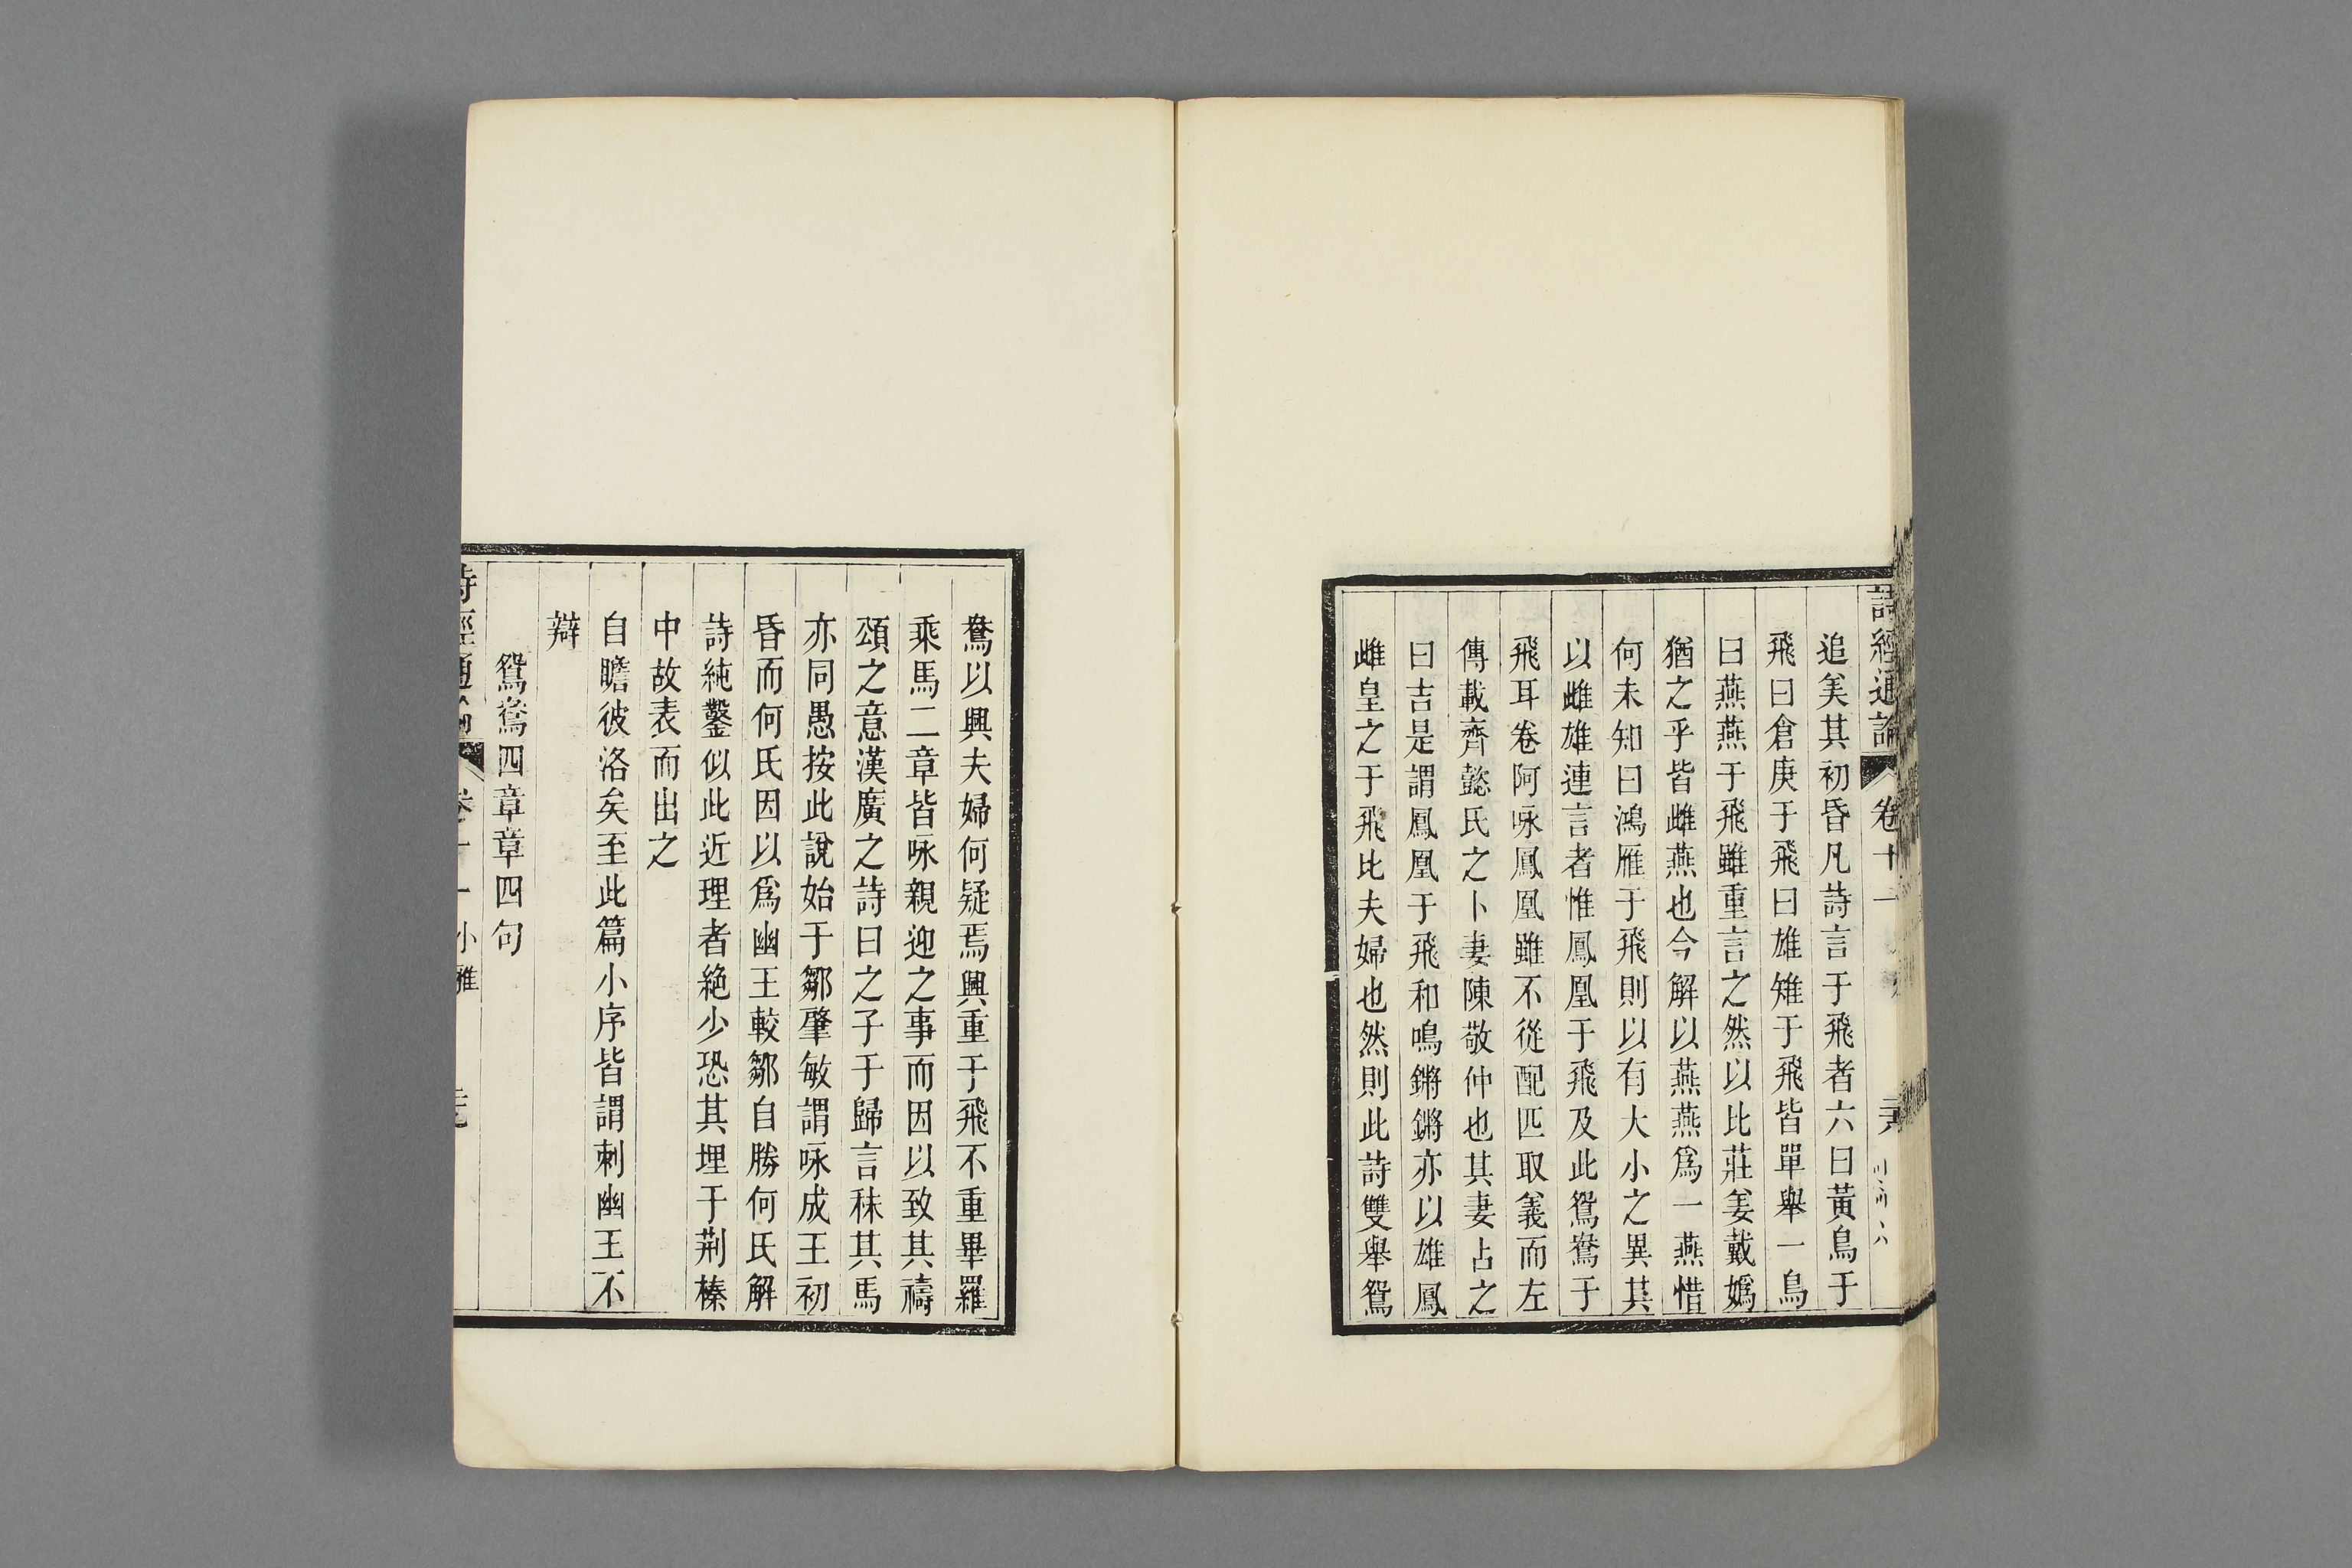 詩經通論 卷十一
追美其初昏凡詩言于飛者六曰黃鳥于
飛曰倉庚于飛曰雄雉于飛皆單舉一鳥
曰燕燕于飛雖重言之然以比莊姜戴媯
猶之乎皆雌燕也今解以燕燕爲一燕惜
何未知曰鴻雁于飛則以有大小之異其
以雌雄連言者惟鳳凰于飛及此鴛鴦于
飛耳卷阿咏鳳凰雖不從配匹取義而左
傳載齊懿氏之卜妻陳敬仲也其妻占之
曰吉是謂鳳凰于飛和鳴鏘鏘亦以雄鳳
雌皇之于飛比夫婦也然則此詩雙舉鴛
鴦以興夫婦何疑焉興重于飛不重畢羅
乘馬二章皆咏親迎之事而因以致其禱
頌之意漢廣之詩曰之子于歸言秣其馬
亦同愚按此說始于鄒肇敏謂咏成王初
昏而何氏因以爲幽王較鄒自勝何氏解
詩純鑿似此近理者絕少恐其埋于荆榛
中故表而出之
自瞻彼洛矣至此篇小序皆謂刺幽王不
辯
鴛鴦四章章四句
詩經通論 卷十一 小雅